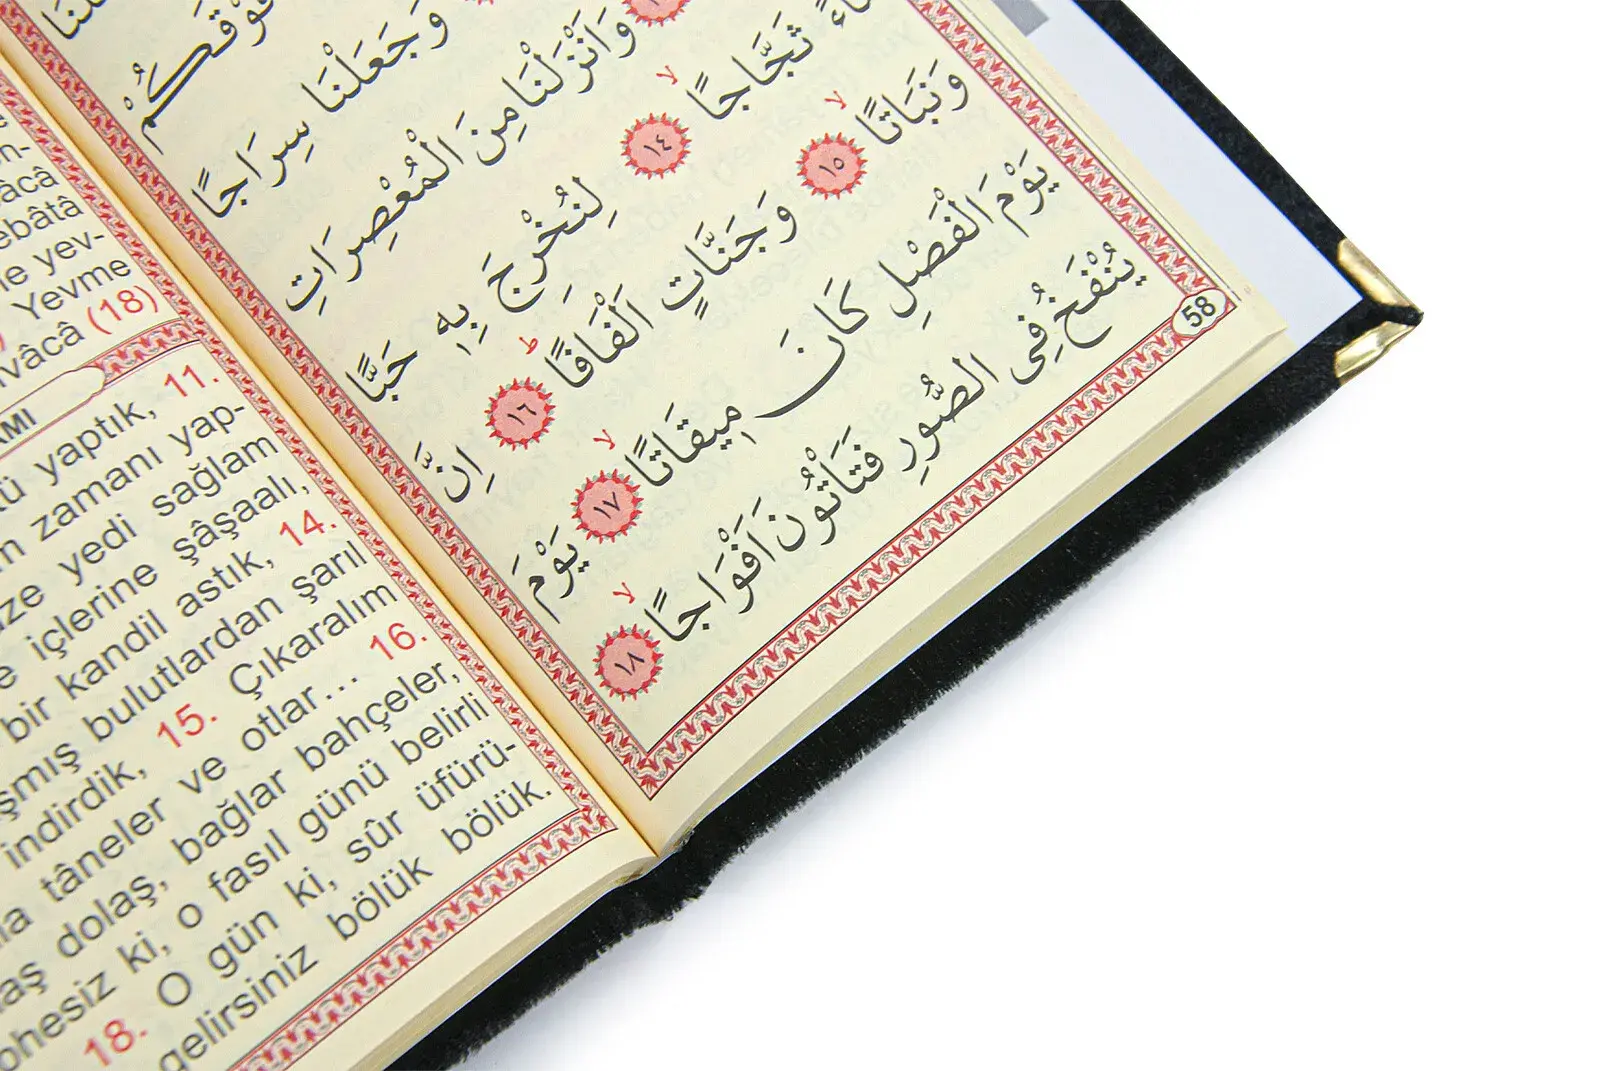 فَوْقَكُمْ
وَجَعَلْنَا سِرَاجًا
وَاَنْزَلْنَا مِنَ الْمُعْصِرَاتِ
ثَجَّاجًا ١٤ لِنُخْرِجَ بِهِ حَبًّا
وَنَبَاتًا ١٥ وَجَنَّاتٍ اَلْفَافًا ١٦ اِنَّ
يَوْمَ الْفَصْلِ كَانَ مِيقَاتًا ١٧ يَوْمَ
يُنْفَخُ فِى الصُّورِ فَتَاْتُونَ اَفْوَاجًا ١٨
58
Yevme
(18)
yaptık, 11.
zamanı yap-
yedi sağlam
içlerine şâşaalı,
bir kandil astık, 14.
bulutlardan şarıl
indirdik, 15. Çıkaralım
tâneler ve otlar... 16.
dolaş, bağlar bahçeler,
ki, o fasıl günü belirli
18. O gün ki, sûr üfürü-
gelirsiniz bölük bölük.